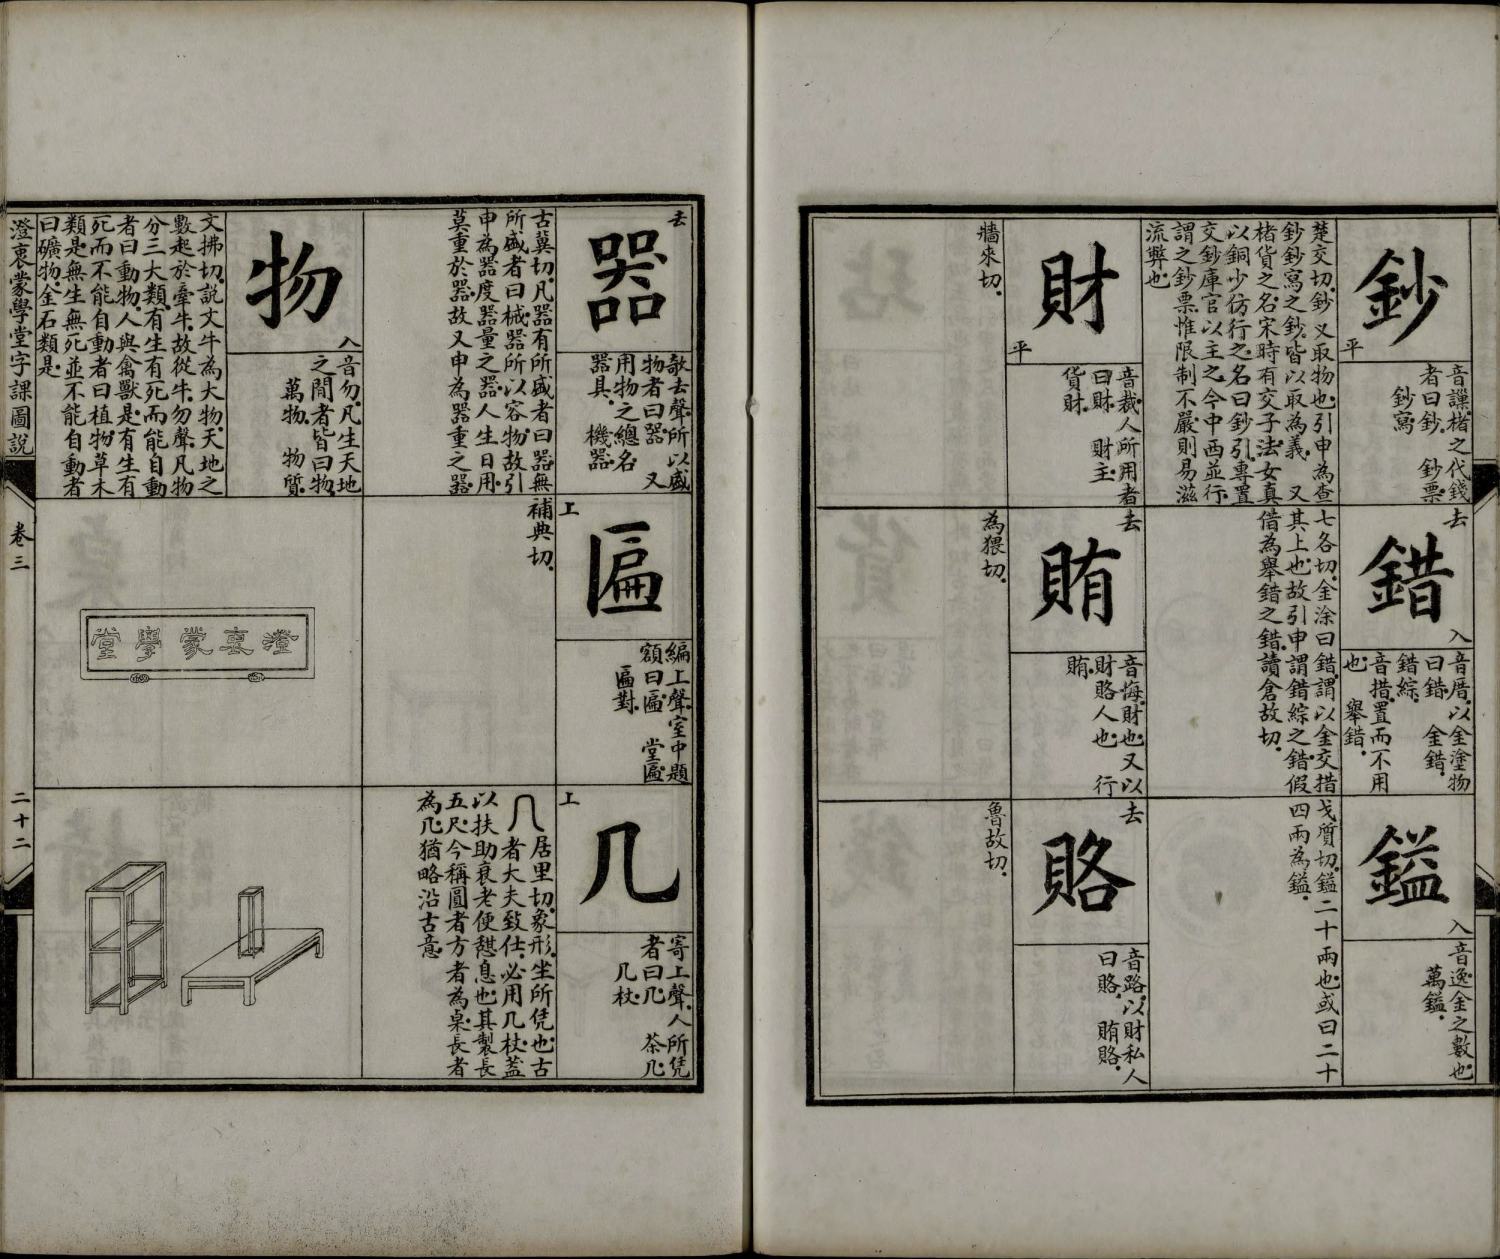 鈔
平
音謙楮之代錢
者曰鈔 鈔票
鈔寫
楚交切鈔叉取物也引申為查
鈔鈔寫之鈔皆以取為義 又
楮貨之名宋時有交子法女真
以銅少仿行之名曰鈔引專置
交鈔庫官以主之今中西並行
謂之鈔票惟限制不嚴則易滋
流弊也
財
平
音裁人所用者
曰財 財主
貨財
牆來切
去
錯
入
音厝以金塗物
曰錯 金錯
錯綜
音措置而不用
也 舉錯
七各切金涂曰錯謂以金交措
其上也故引申謂錯綜之錯假
借為舉錯之錯讀倉故切
去
賄
音悔財也又以
財賂人也 行
賄
為猥切
鎰
入
音逸金之數也
萬鎰
弋質切鎰二十兩也或曰二十
四兩為鎰
去
賂
音路以財私人
曰賂 賄賂
魯故切
去
器
欹去聲所以盛
物者曰器 又
用物之總名
器具 機器
古冀切凡器有所盛者曰器無
所盛者曰械器所以容物故引
申為器度器量之器人生日用
莫重於器故又申為器重之器
物
入
音勿凡生天地
之間者皆曰物
萬物 物質
文拂切說文牛為大物天地之
數起於牽牛故從牛勿聲凡物
分三大類有生有死而能自動
者曰動物人與禽獸是有生有
死而不能自動者曰植物草木
類是無生無死並不能自動者
曰礦物金石類是
上
匾
編上聲室中題
額曰匾 堂匾
匾對
補典切
澄衷蒙學堂
上
几
寄上聲人所凭
者曰几 茶几
几杖
居里切象形坐所凭也古
者大夫致仕必用几杖蓋
以扶助衰老便憇息也其製長
五尺今稱圓者方者為桌長者
為几猶略沿古意
澄衷蒙學堂字課圖說
卷三
二十二